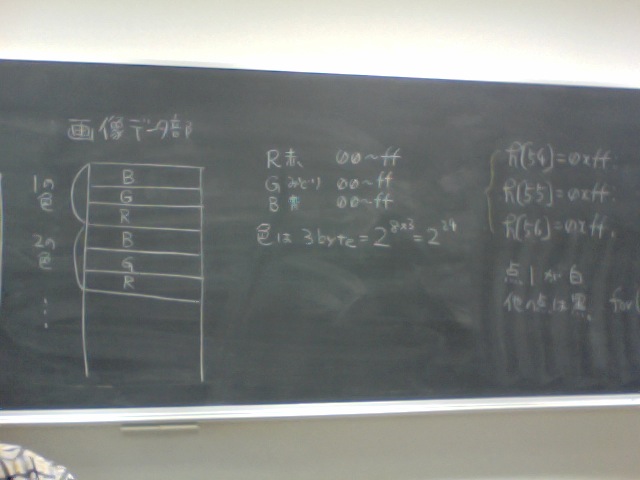 画像データ部
1の
色
B
G
R
2の
色
B
G
R
⋮
R 赤 00~ff
G みどり 00~ff
B 青 00~ff
色は 3byte = 2^{8×3} = 2^{24}
h[54] = 0xff
h[55] = 0xff
h[56] = 0xff
点1が白
他の点は黒 for(